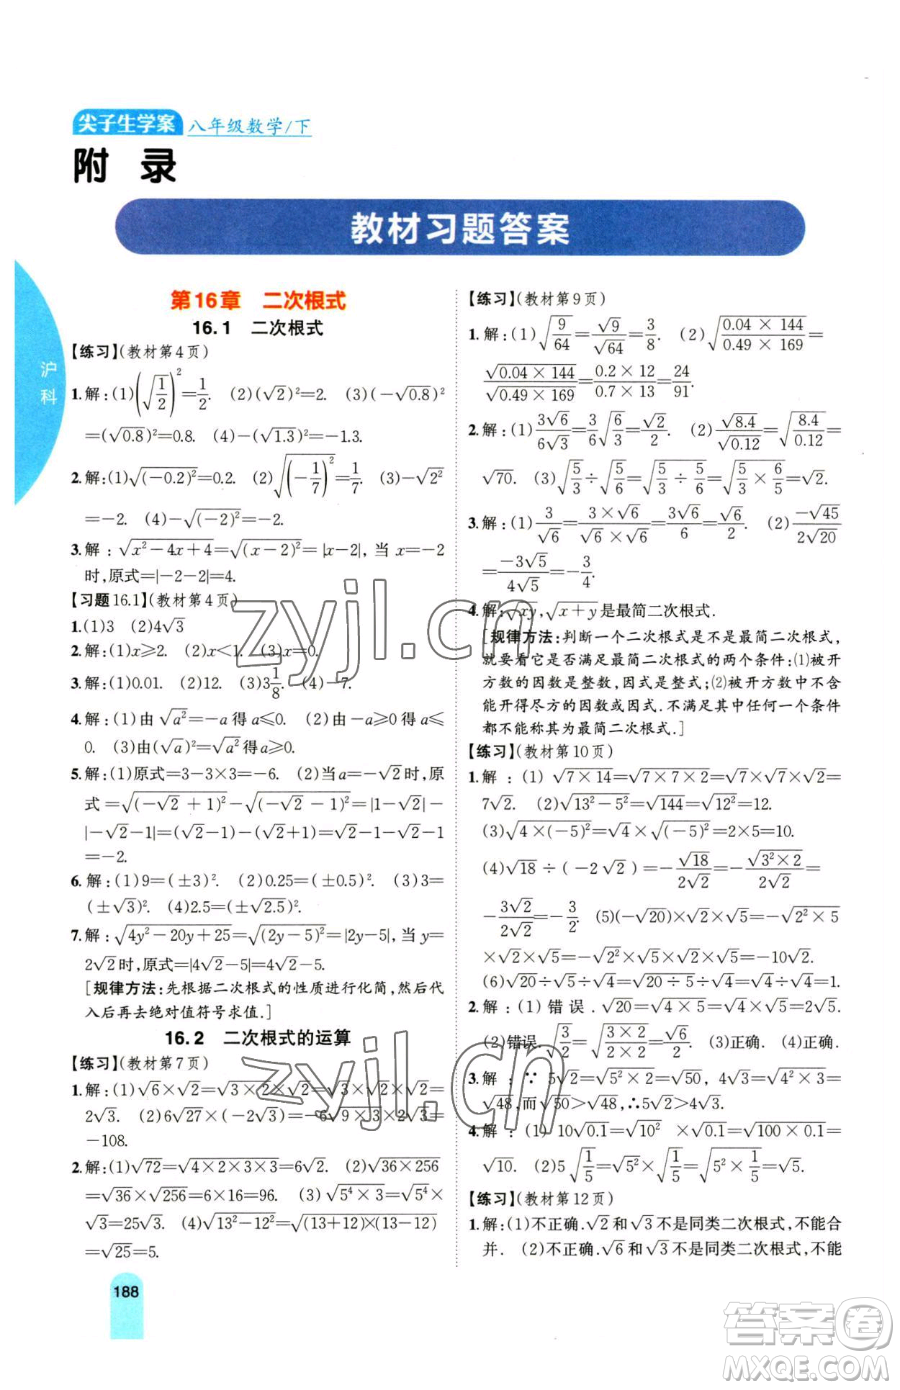 尖子生学案 八年级数学/下
附 录
教材习题答案
沪科
第16章 二次根式
16.1 二次根式
【练习】(教材第4页)
1.解:(1)(√(1/2))²=1/2. (2)(√2)²=2. (3)(-√0.8)²
=(√0.8)²=0.8. (4)-(√1.3)²=-1.3.
2.解:(1)√(-0.2)²=0.2. (2)√(-1/7)²=1/7. (3)-√2²
=-2. (4)-√(-2)²=-2.
3.解:√(x²-4x+4)=√(x-2)²=|x-2|,当 x=-2
时,原式=|-2-2|=4.
【习题16.1】(教材第4页)
1.(1)3 (2)4√3
2.解:(1)x≥2. (2)x<1. (3)x=0.
3.解:(1)0.01. (2)12. (3)3 1/8. (4)-7.
4.解:(1)由√a²=-a得a≤0. (2)由√a²=-a得a≤
0. (3)由(√a)²=a得a≥0.
5.解:(1)原式=3-3×3=-6. (2)当a=-√2时,原
式=√(-√2+1)²-√(-√2-1)²=|1-√2|-
|-√2-1|=(√2-1)-(√2+1)=√2-1-√2-1
=-2.
6.解:(1)9=(±3)². (2)0.25=(±0.5)². (3)3=
(±√3)². (4)2.5=(±√2.5)².
7.解:√(4y²-20y+25)=√(2y-5)²=|2y-5|,当y=
2√2时,原式=|4√2-5|=4√2-5.
[规律方法:先根据二次根式的性质进行化简,然后代
入后再去绝对值符号求值.]
16.2 二次根式的运算
【练习】(教材第7页)
1.解:(1)√6×√2=√3×√2×√2=√3×2=
2√3. (2)6√27×(-2√3)=-6√9×3×2√3=
-108.
2.解:(1)√72=√(4×2×3×3)=6√2. (2)√(36×256)
=√36×√256=6×16=96. (3)√(5⁴×3)=√5⁴×
√3=25√3. (4)√(13²-12²)=√((13+12)×(13-12))
=√25=5.
188
【练习】(教材第9页)
1.解:(1)√(9/64)=√9/√64=3/8. (2)√((0.04×144)/(0.49×169))=
√(0.04×144)/√(0.49×169)=(0.2×12)/(0.7×13)=24/91.
2.解:(1)3√6/6√3=3/6√(6/3)=√2/2. (2)√8.4/√0.12=√(8.4/0.12)=
√70. (3)√(5/3)÷√(5/6)=√(5/3÷5/6)=√(5/3×6/5)=√2.
3.解:(1)3/√6=(3×√6)/(√6×√6)=3√6/6=√6/2. (2)-√45/2√20
=-3√5/4√5=-3/4.
4.解:√xy,√(x+y)是最简二次根式.
[规律方法:判断一个二次根式是不是最简二次根式,
就要看它是否满足最简二次根式的两个条件:(1)被开
方数的因数是整数,因式是整式;(2)被开方数中不能
含能开得尽方的因数或因式.只要不满足其中一个条件
都不能称其为最简二次根式.]
【练习】(教材第10页)
1.解:(1)√(7×14)=√(7×7×2)=√7²×√2=
7√2. (2)√(13²-5²)=√144=√12²=12.
(3)√(4×(-5)²)=√4×√(-5)²=2×5=10.
(4)√18÷(-2√2)=-√18/2√2=-√(3²×2)/2√2=
-3√2/2√2=-3/2. (5)(-√20)×√2×√5=-√(2²×5)
×√2×√5=-2√5×√2×√5=-10√2.
(6)√20÷√5÷√4=√(20÷5)÷√4=√4÷√4=1.
2.解:(1)错误.√20=√(4×5)=√4×√5=2√5.
(2)错误.√(3/2)=√((3×2)/(2×2))=√6/2. (3)正确. (4)正确.
3.解:∵5√2=√(5²×2)=√50,4√3=√(4²×3)=
√48,而√50>√48,∴5√2>4√3.
4.解:(1)10√0.1=√10²×√0.1=√(100×0.1)=
√10. (2)5√(1/5)=√5²×√(1/5)=√(5²×1/5)=√5.
【练习】(教材第12页)
1.解:(1)不正确.√2和√3不是同类二次根式,不能合
并. (2)不正确.√6和√3不是同类二次根式,不能
zyjl.cn
zyjl.cn
答案圈
MXQE.COM